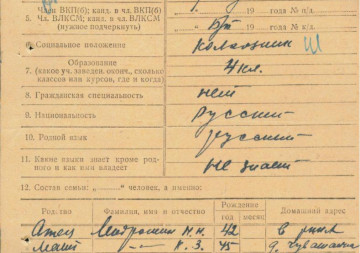 Член ВКП(б); канд. в чл. ВКП(б) 19 года № п/д.
5. Чл. ВЛКСМ; канд. в чл. ВЛКСМ б/п 19 года № ч/б.
(нужное подчеркнуть)
6. Социальное положение Колхозник
7. Образование 4 кл.
(какое уч. заведен. оконч., сколько
классов или курсов, где и когда)
8. Гражданская специальность нет
9. Национальность Русский
10. Родной язык русский
11. Какие языки знает кроме род-
ного и как ими владеет не знает
12. Состав семьи: „ “ человек, а именно:
Родство Фамилия, имя и отчество Рождение Домашний адрес
год месяц
Отец М.Н. 42
Мать К. З. 45 д.